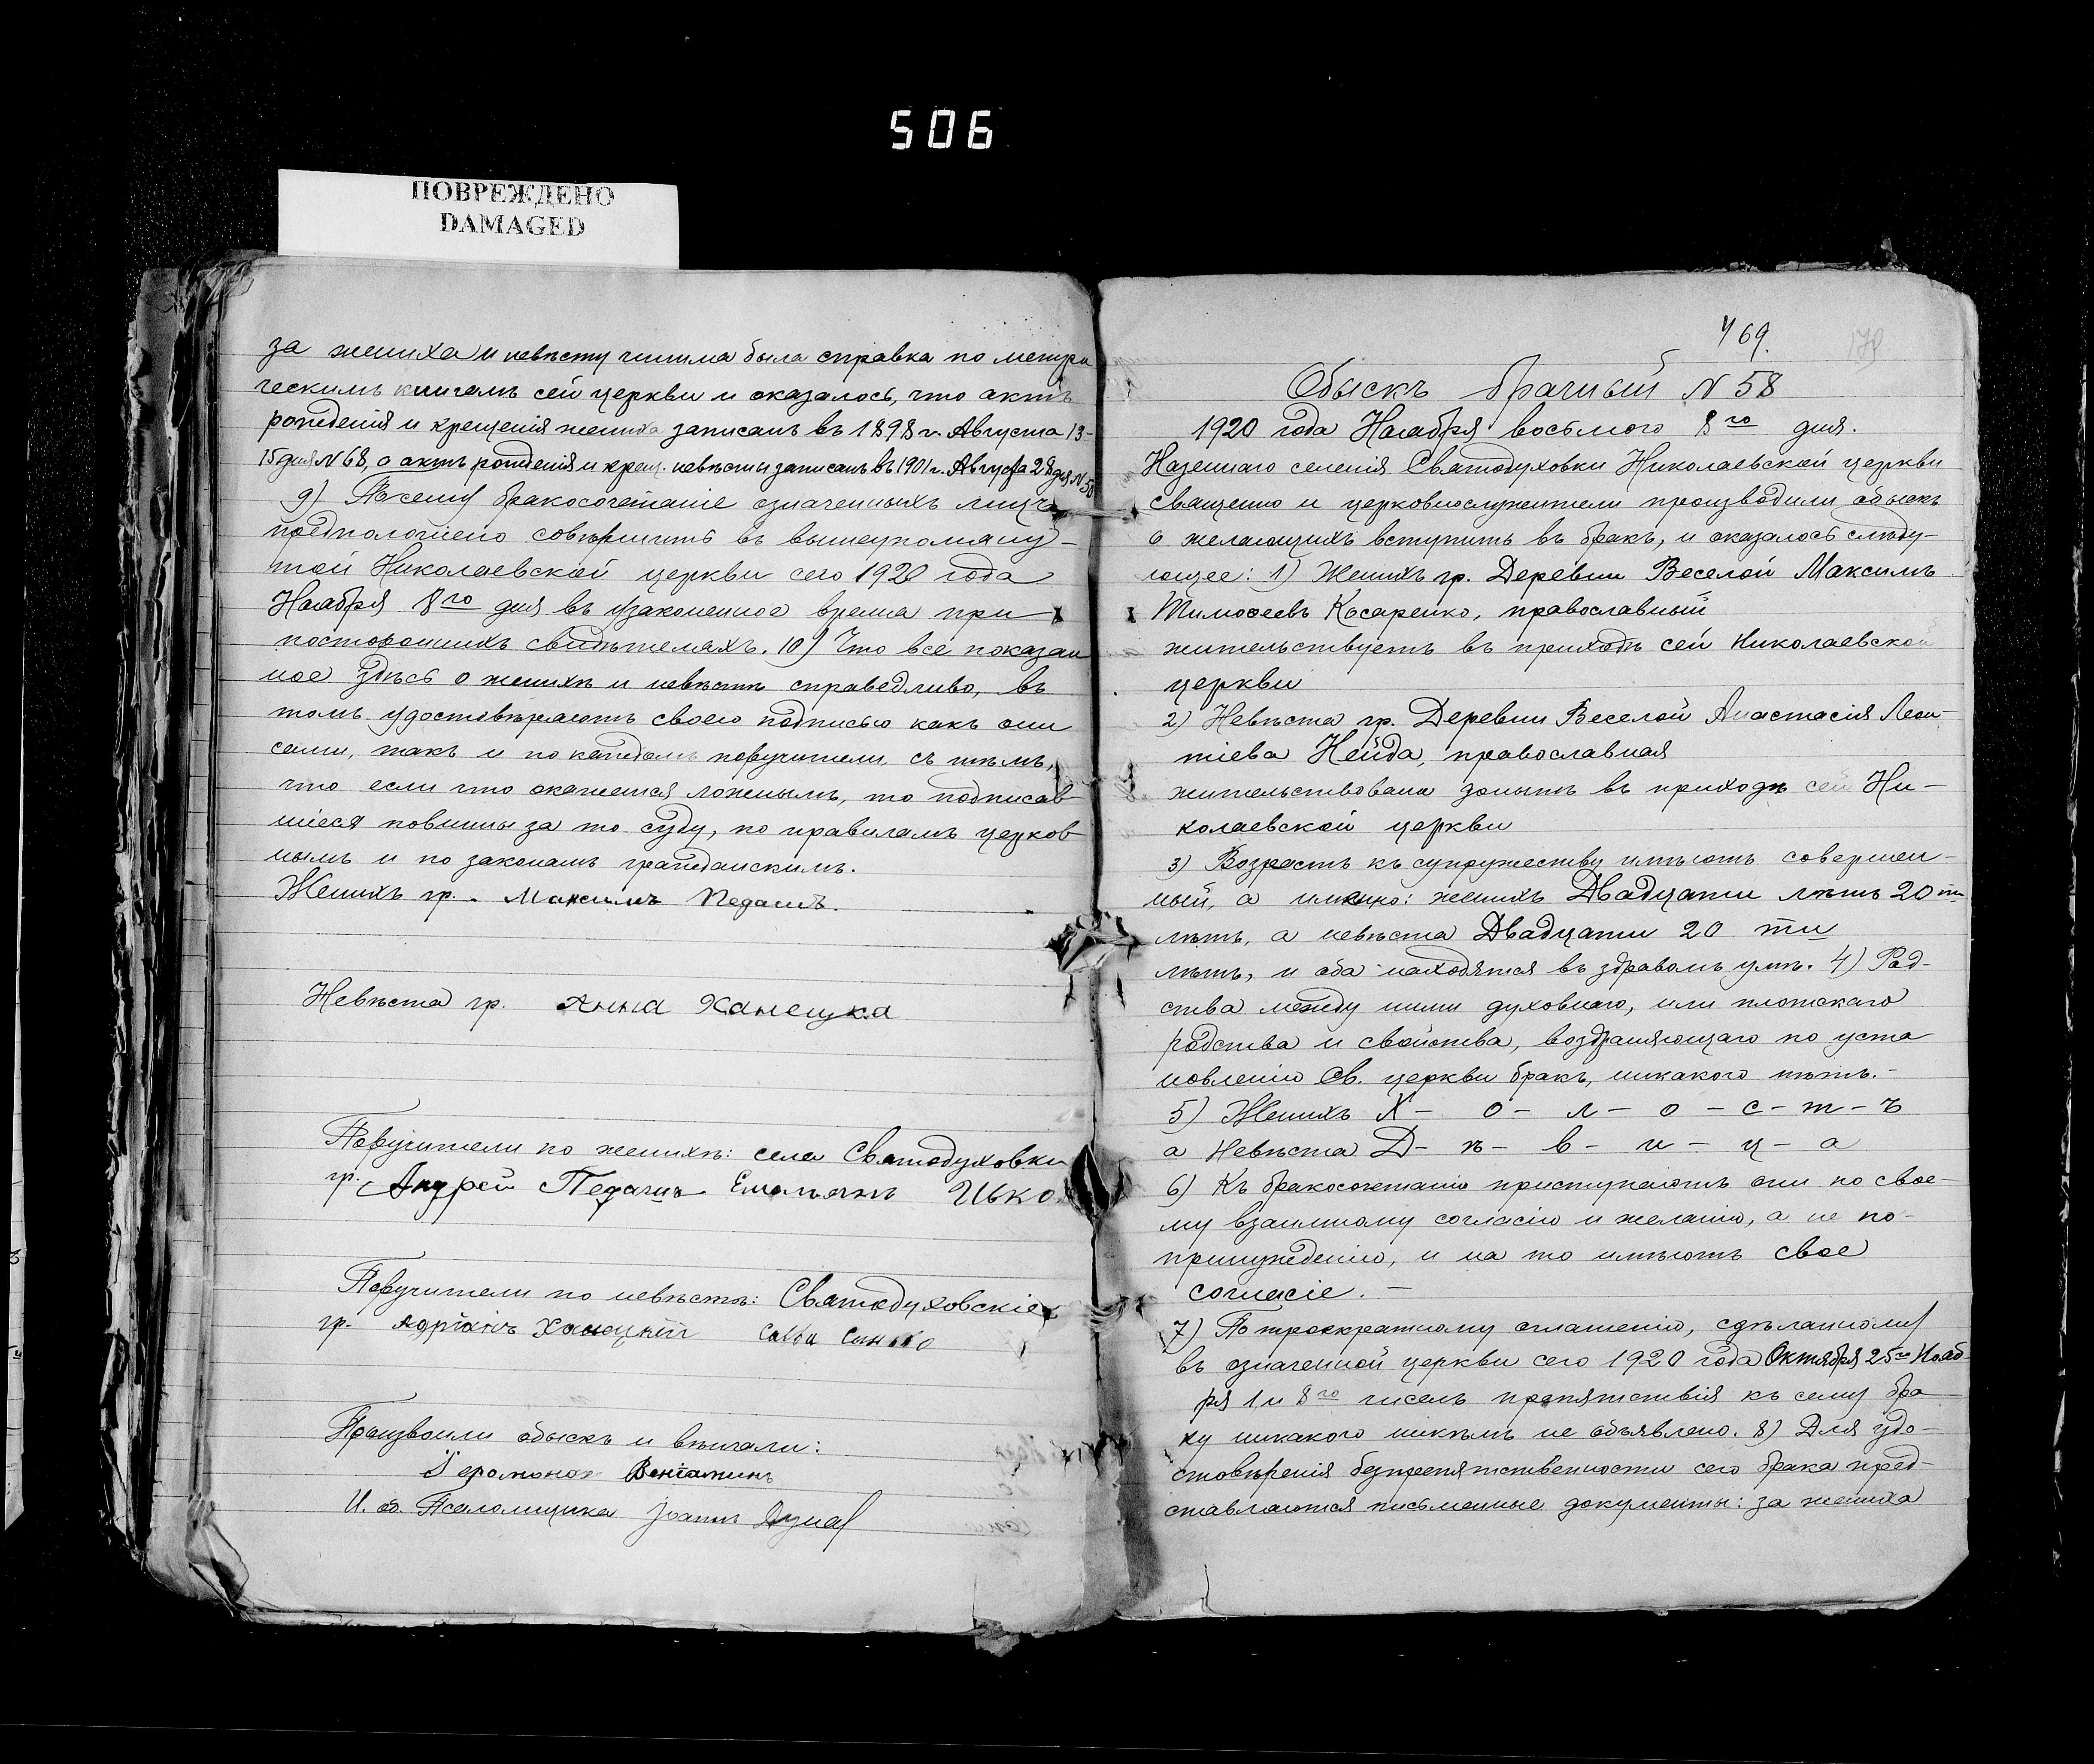 506
ПОВРЕЖДЕНО
DAMAGED
за жениха и невѣсту чинима была справка по метри
ческимъ книгамъ сей церкви и оказалось, что актъ
рожденія и крещенія жениха записанъ въ 1898 г. Августа 13-
15 дня N 68, а актъ рожденія и крещ. невѣсты записанъ въ 1901 г. Августа 28 дня N 58
9) По сему бракосочетаніе означенныхъ лицъ
предположено совершить въ вышеупомяну-
той Николаевской церкви сего 1920 года
Ноября 8го дня въ узаконенное время при
постороннихъ свидѣтеляхъ. 10) Что все показан
ное здѣсь о женихѣ и невѣстѣ справедливо, въ
томъ удостовѣряютъ своею подписью какъ они
сами, такъ и по каждомъ поручители, съ тѣмъ,
что если что окажется ложнымъ, то подписав
шіеся повинны за то суду, по правиламъ церков
нымъ и по законамъ гражданскимъ.
Женихъ гр. Максимъ Педашъ.
Невѣста гр. Анна Ханецка
Поручители по женихѣ: села Святодуховки
гр. Андрей Педашъ Емельянъ Цько
Поручители по невѣстѣ: Святодуховскіе
гр. Адріанъ Ханецкій Савва Синько
Произвоили обыскъ и вѣнчали:
Іеромонах Веніаминъ
И. об. Псаломщика Іоаннъ
169.
Обыскъ брачный N 58
1920 года Ноября восьмого 8го дня.
Казеннаго селенія Святодуховки Николаевской церкви
священно и церковнослужители производили обыскъ
о желающихъ вступить въ бракъ, и оказалось слѣду-
ющее: 1) Женихъ гр. Деревни Веселой Максимъ
Тимофеевъ Косаренко, православный
жительствуетъ въ приходѣ сей Николаевской
церкви
2) Невѣста гр. Деревни Веселой Анастасія Леон-
тіева Кейда, православная
жительствовала донынѣ въ приходѣ сей Ни-
колаевской церкви
3) Возрастъ къ супружеству имѣютъ совершен-
ный, а именно: женихъ Двадцати лѣтъ 20 ти
лѣтъ, а невѣста Двадцати 20 ти
лѣтъ, и оба находятся въ здравомъ умѣ. 4) Род-
ства между ними духовнаго, или плотскаго
родства и свойства, возбраняющаго по уста
новленію Св. церкви бракъ, никакого нѣтъ.-
5) Женихъ Х - о - л - о - с - т - ъ
а Невѣста Д - ѣ - в - и - ц - а
6) Къ бракосочетанію приступаютъ они по свое-
му взаимному согласію и желанію, а не по-
принужденію, и на то имѣютъ свое
согласіе. -
7) По троекратному оглашенію, сдѣланному
въ означенной церкви сего 1920 года Октября 25го Нояб-
ря 1 и 8го чиселъ препятствія къ сему бра
ку никакого никѣмъ не объявлено. 8) Для удо-
стовѣренія безпрепятственности сего брака пред-
ставляются письменные документы: за жениха